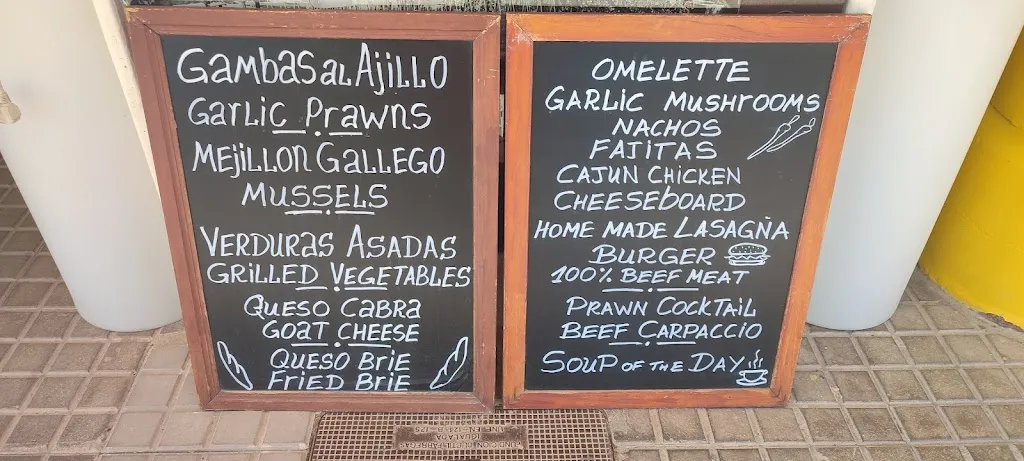 GAMBAS AL AJILLO
GARLIC PRAWNS
MEJILLON GALLEGO
MUSSELS
VERDURAS ASADAS
GRILLED VEGETABLES
QUESO CABRA
GOAT CHEESE
QUESO BRIE
FRIED BRIE
OMELETTE
GARLIC MUSHROOMS
NACHOS
FAJITAS
CAJUN CHICKEN
CHEESEBOARD
HOME MADE LASAGÑA
BURGER
100% BEEF MEAT
PRAWN COCKTAIL
BEEF CARPACCIO
SOUP OF THE DAY
IGUALADA